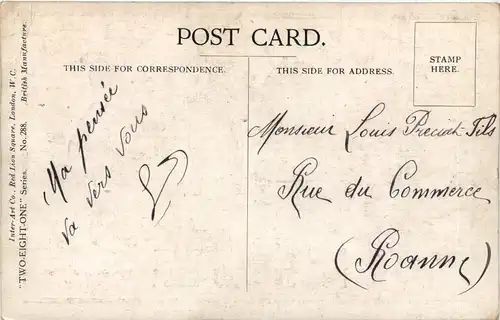 POST CARD.
THIS SIDE FOR CORRESPONDENCE.
THIS SIDE FOR ADDRESS.
STAMP
HERE.
Ma pensée
va vers vous
Monsieur Louis Fils
Rue du Commerce
(Roanne)
Inter-Art Co., Red Lion Square, London, W.C.
British Manufacture.
"TWO-EIGHT-ONE" Series. No. 288.